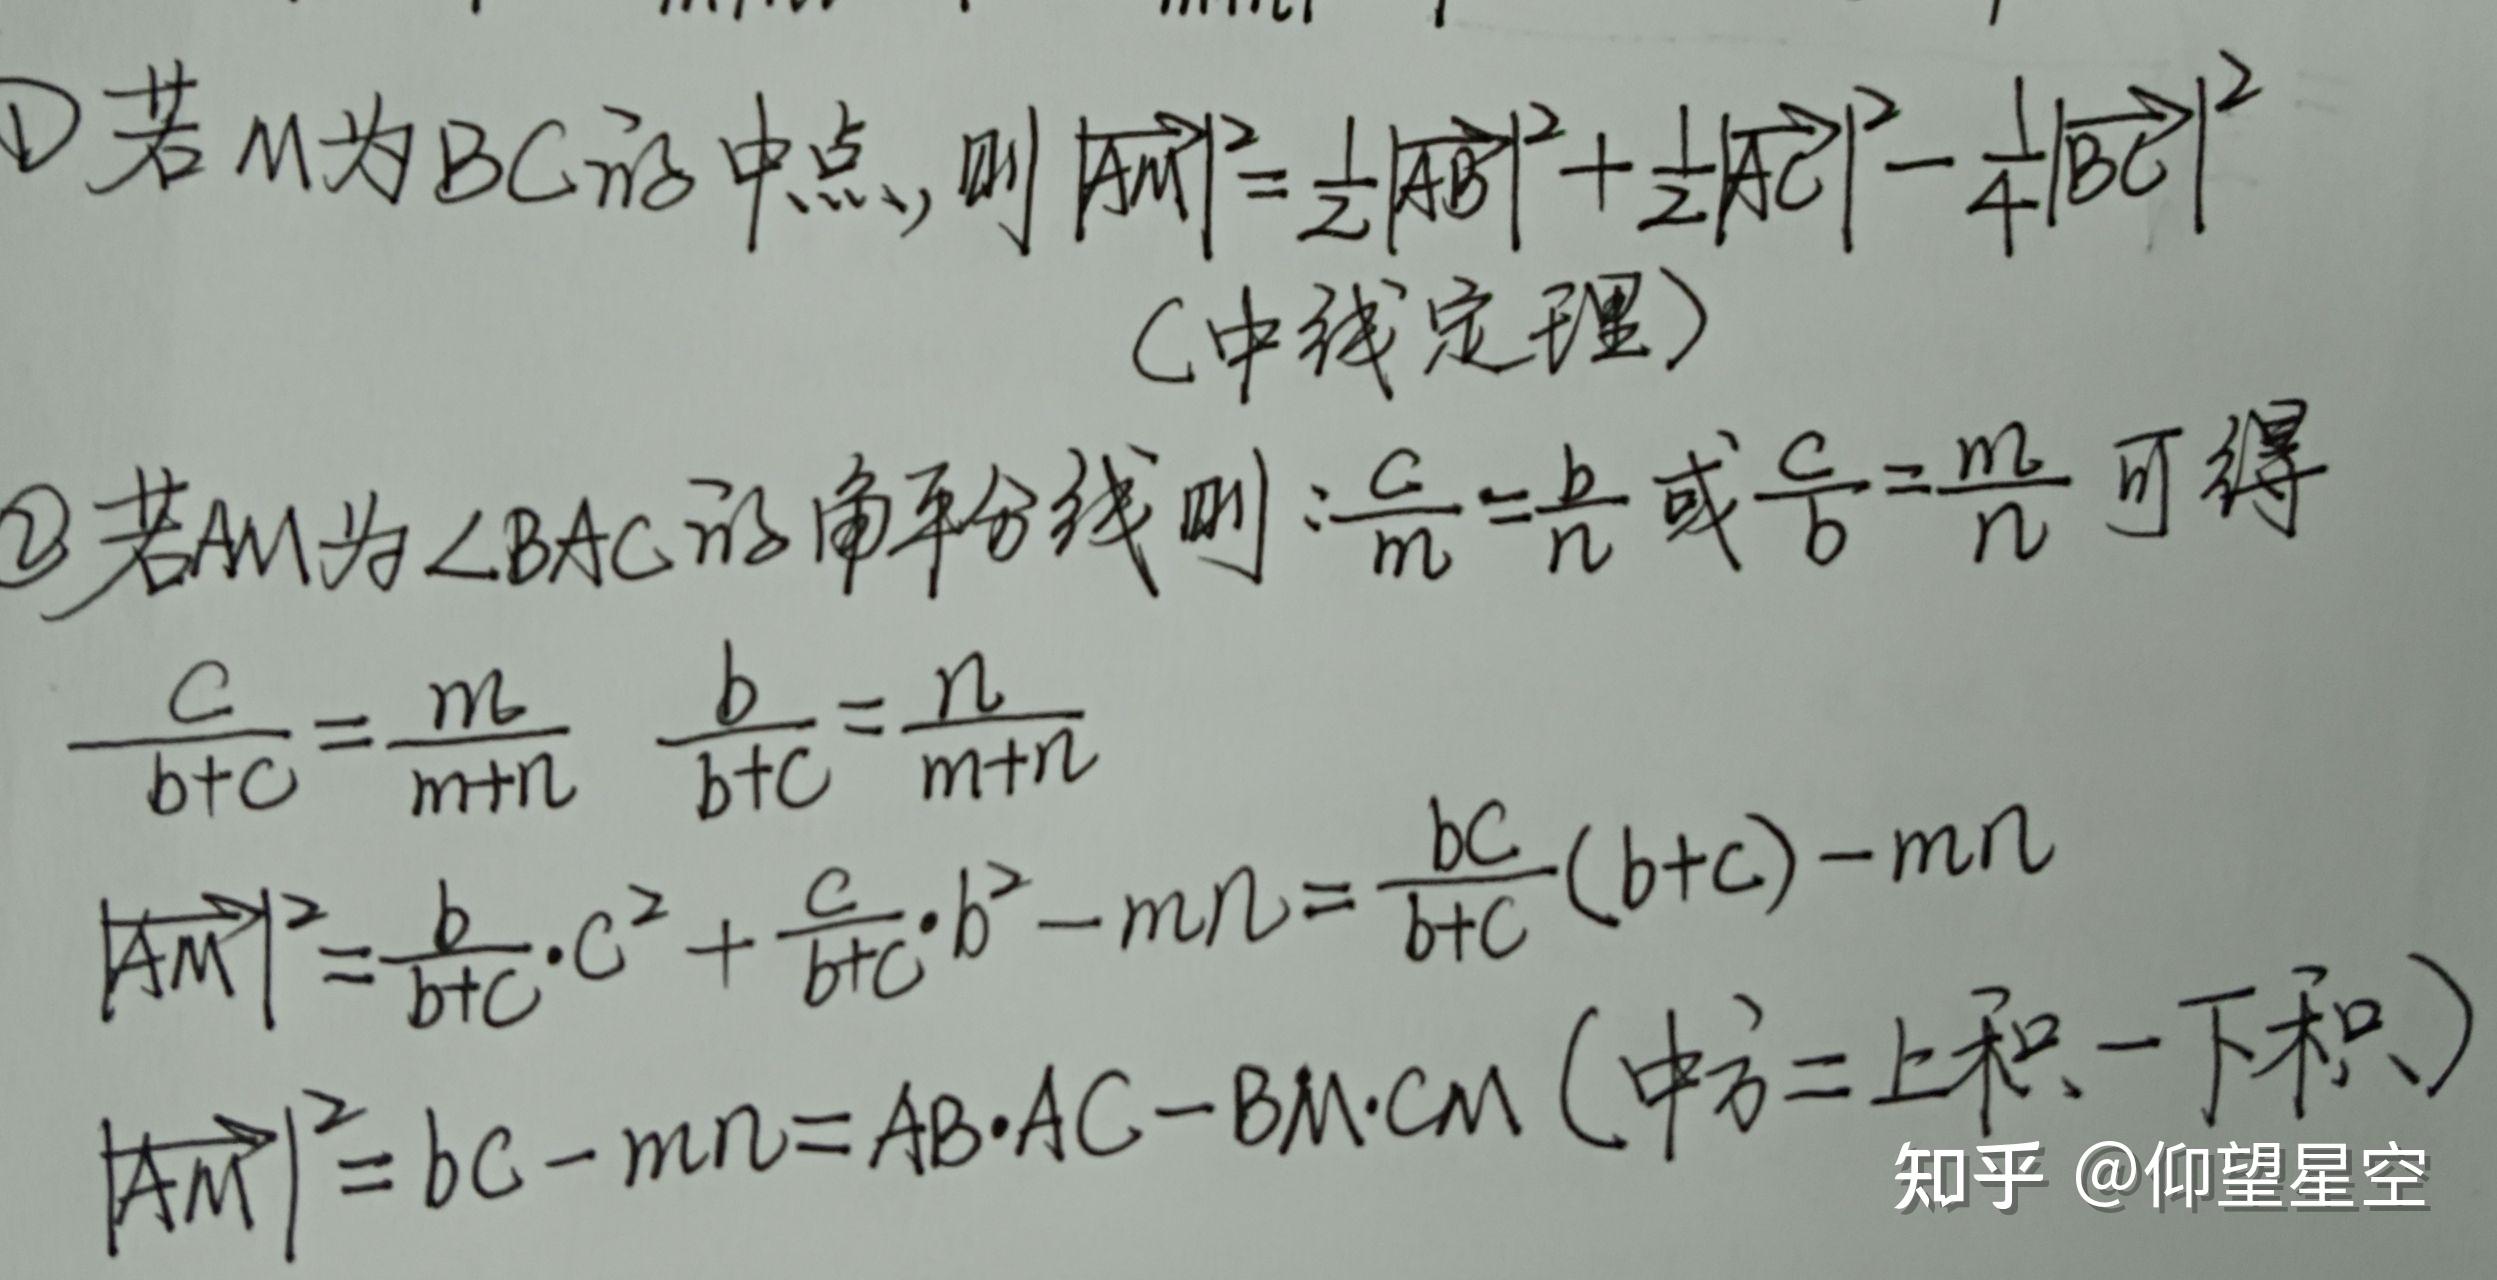 ① 若M为BC的中点，则 |AM|² = 1/2|AB|² + 1/2|AC|² - 1/4|BC|²
（中线定理）
② 若AM为∠BAC的角平分线则：c/m = b/n 或 c/b = m/n 可得
c/(b+c) = m/(m+n) b/(b+c) = n/(m+n)
|AM|² = b/(b+c)·c² + c/(b+c)·b² - mn = bc/(b+c)(b+c) - mn
|AM|² = bc - mn = AB·AC - BM·CM（中方=上积-下积）
知乎 @仰望星空